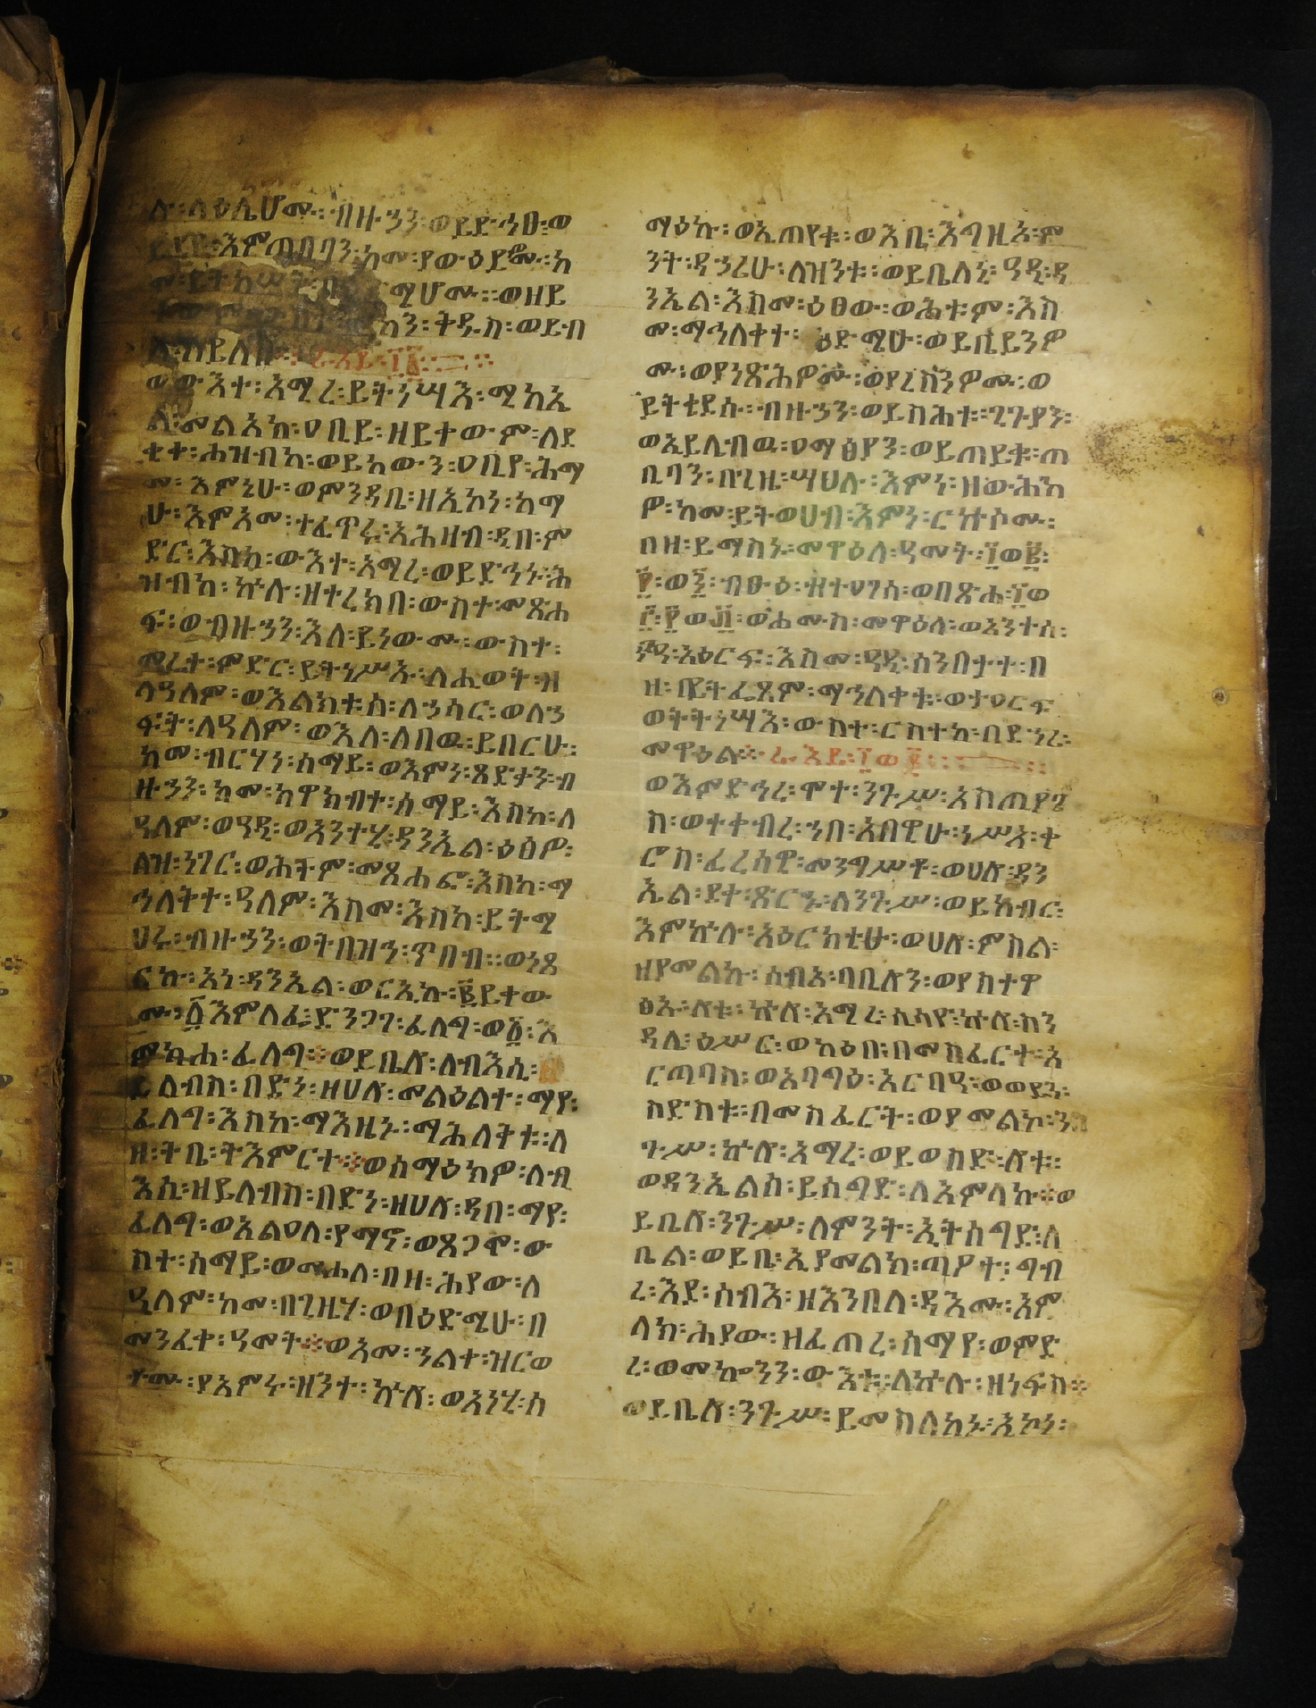 ሉ፡ላዕሌሆሙ፡ብዙኃን፡ወይድኅፁ፡ወ
እምጠቢባን፡ከመ፡ያውዕይዎሙ፡ከ
ሚሆሙ፡፡ወዘይ
ከን፡ትዱክ፡ወይብ
ራእይ፡፲፩፡
ወውእተ፡አሚረ፡ይትነሣእ፡ሚከኤ
ል፡መልአክ፡ዐቢይ፡ዘይተውም፡ለደ
ቂተ፡ሕዝብከ፡ወይከውን፡ዐቢየ፡ሕማ
መ፡እምኔሁ፡ወምንዳቤ፡ዘኢኮነ፡ከማ
ሁ፡እምአመ፡ተፈጥሩ፡አሕዛብ፡ዲበ፡ም
ድር፡እስከ፡ውእተ፡አሚረ፡ወይድኅኑ፡ሕ
ዝብከ፡ኵሉ፡ዘተረክበ፡ውስተ፡መጽሐ
ፍ፡ወብዙኃን፡እለ፡ይነውሙ፡ውስተ፡
መሬተ፡ምድር፡ይትነሥኡ፡ለሕይወት፡ዘ
ላዓለም፡ወእልክቱሰ፡ለኃሳር፡ወለኃ
ፍት፡ለዓለም፡ወእለ፡ለበዉ፡ይበርሁ፡
ከመ፡ብርሃነ፡ሰማይ፡ወእምነ፡ጻድቃን፡ብ
ዙኃን፡ከመ፡ከዋክብተ፡ሰማይ፡እስከ፡ለ
ዓለም፡ወዓዲ፡ወአንተሂ፡ዳንኤል፡ዕፅዎ፡
ለዝ፡ነገር፡ወሕትም፡መጽሐፎ፡እስከ፡ማ
ኅለትተ፡ዓለም፡እስመ፡እስከ፡ይትሜ
ህሩ፡ብዙኃን፡ወትበዝኅ፡ጥበብ፡፡ወነጸ
ርኩ፡አነ፡ዳንኤል፡ወርኢኩ፡፪ይተው
ሙ፡፩እምለፌ፡ድንጋገ፡ፈለግ፡ወ፩፡እ
ማዕሐ፡ፈለግ፡ወይቤሉ፡ለብእሲ፡
ይለብስ፡በድነ፡ዘሀሉ፡መልዕልተ፡ማየ፡
ፈለግ፡እስከ፡ማእዜኑ፡ማሕለትቱ፡ለ
ዘ፡ትቤ፡ትእምርተ፡ወሰማዕክዎ፡ለብ
እሲ፡ዘይለብስ፡በድነ፡ዘሀሉ፡ዲበ፡ማየ፡
ፈለግ፡ወአልዐለ፡የማኖ፡ወጸጋሞ፡ው
ስተ፡ሰማይ፡ወመሐለ፡በዘ፡ሕያው፡ለ
ዓለም፡ከመ፡በጊዜሃ፡ወበዕድሜሁ፡በ
መንፈቀ፡ዓመት፡ወአመ፡ኀልቀ፡ዝርወ
ቶሙ፡ያአምሩ፡ዘንተ፡ኵሉ፡ወአነሂ፡ሰ
ማዕኩ፡ወኢጠየቁ፡ወእቢ፡እግዚኦ፡ም
ንት፡ዳኃሪሁ፡ለዝንቱ፡፡ወይቤለኒ፡ዓዲ፡ዳ
ንኤል፡እስመ፡ዕፀው፡ወሕቱም፡እስ
መ፡ማኅለቀተ፡ዕድሜሁ፡ወይቤይንዎ
ሙ፡ወያነጽሕዎሙ፡ወያረስንዎሙ፡ወ
ይትቄደሱ፡ብዙኃን፡ወይስሕቱ፡ጊጉያን፡
ወኢይሌብዉ፡ዐማፅያን፡ወይጠይቁ፡ጠ
ቢባን፡በጊዜ፡ሣህሉ፡እምነ፡ዘውሕከ
ዎ፡ከመ፡ይትወሀብ፡እምነ፡ርኵሶሙ፡
በዘ፡ይማስኑ፡መዋዕለ፡ዓመት፡፲ወ፪፡
፻፡ወ፺፡ብፁዕ፡ዘተዐገሰ፡ወበጽሐ፡፲ወ
፫፡፻ወ፴፡ወሐሙስ፡መዋዕለ፡ወአንተሰ፡
ዓዲ፡አዕርፍ፡እስመ፡ዓዲ፡ሰንበታተ፡በ
ዘ፡በይትፌጸም፡ማኅለቀቱ፡ወታዐርፍ
ወትትነሣእ፡ውስተ፡ርስተከ፡በደኃሪ፡
መዋዕል፡ራእይ፡፲ወ፪፡
ወእምድኅረ፡ሞተ፡ንጉሥ፡አስጢያጊ
ስ፡ወተቀብረ፡ኀበ፡አበዊሁ፡ነሥአ፡ቂ
ሮስ፡ፈረሳዊ፡መንግሥቶ፡ወሀሉ፡ዳን
ኤል፡ደተ፡ጽርሑ፡ለንጉሥ፡ወይከብር፡
እምኵሉ፡አዕርክቲሁ፡ወሀሉ፡ምስል፡
ዘያመልኩ፡ሰብአ፡ባቢሎን፡ወያስተዋ
ፅኡ፡ሎቱ፡ኵሉ፡አሚረ፡ሲሳየ፡ኵሉ፡ስን
ዳሌ፡ዕሥር፡ወከዕበ፡በመስፈርተ፡አ
ርጣባስ፡ወአባግዕ፡አርባዓ፡ወወይን፡
ስድስቱ፡በመስፈርት፡ወያመልኮ፡ን
ጉሥ፡ኵሉ፡አሚረ፡ወይወስድ፡ሎቱ፡
ወዳንኤልሰ፡ይሰግድ፡ለአምላኩ፡ወ
ይቤሎ፡ንጉሥ፡ለምንት፡ኢትሰግድ፡ለ
ቤል፡ወይቤ፡ኢያመልክ፡ጣዖተ፡ግብ
ረ፡እደ፡ሰብእ፡ዘእንበለ፡ዳእሙ፡አም
ላክ፡ሕያው፡ዘፈጠረ፡ሰማየ፡ወምድ
ረ፡ወመኰንን፡ውእቱ፡ለኵሉ፡ዘነፍስ፡
ወይቤሎ፡ንጉሥ፡ይመስለከኑ፡ኢኮነ፡